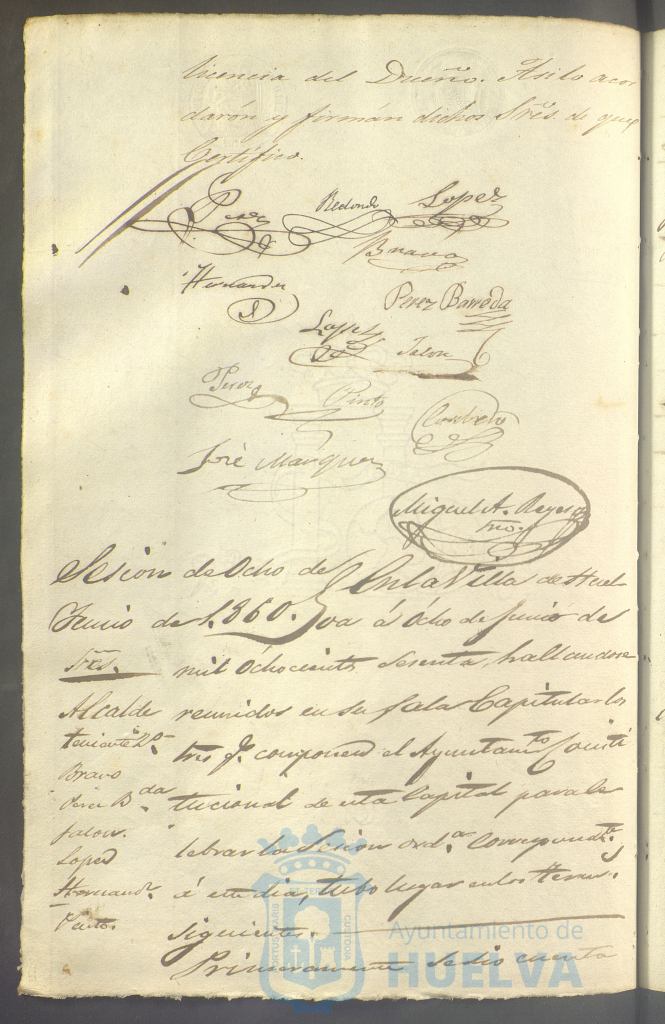 licencia del Dueño. Asi lo acor
daron y firmán dichos Sres. de que
Certifico.
Perez Redondo Lopez
Bravo
Hernandez Perez Barreda
Lopez Jalon
Perez Pinto
José Marquez
Miguel A. Reyes
Srio.
Sesion de Ocho de
Junio de 1.860.
En la Villa de Huel
va á Ocho de Junio de
mil Ochocientos Sesenta, hallandose
reunidos en su Sala Capitular los
Sres q.e componen el Ayuntamto Consti
tucional de esta Capital para ce
lebrar la Sesion ord.a Correspondte
á este dia, tubo lugar en los term.s
siguientes.
Primeramente Se dio cuenta
Sres.
Alcalde
teniente 2º
Bravo
Perez Bda
Jalon.
Lopez
Hernandz
Pinto.
Ayuntamiento de
HUELVA